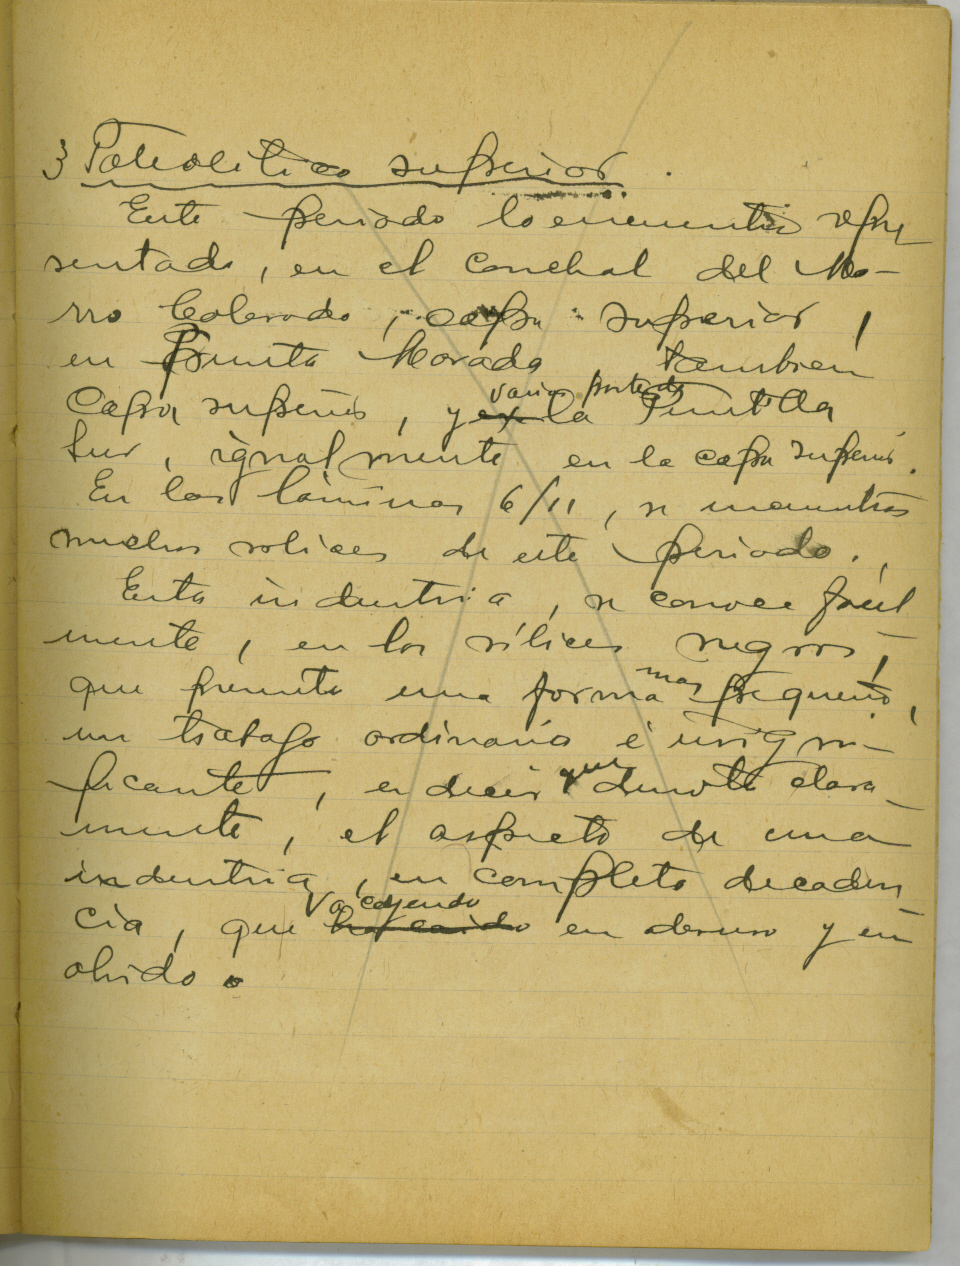 3 Paleolitico superior.
Este periodo lo encuentro repre
sentado, en el conchal del Mo-
rro Colorado, capa superior,
en Punta Morada tambien
Capa superior, y varias partes de
la Puntilla
Sur, igualmente en la capa superior.
En las láminas 6/11, se encuentran
muchos solices de este periodo.
Esta industria, se conoce fácil
mente, en los sílices negros,
que presenta una forma mas pequeña,
un trabajo ordinario é insigni-
ficante, es decir que denota clara-
mente, el aspecto de una
industria, en completa decaden
cia, que va cayendo en desuso y en
olvido.